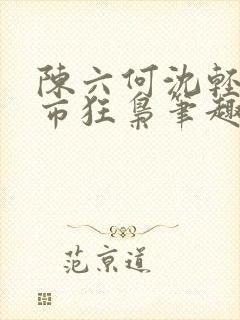 陳六何沈輕
市狂梟筆趣
范京道